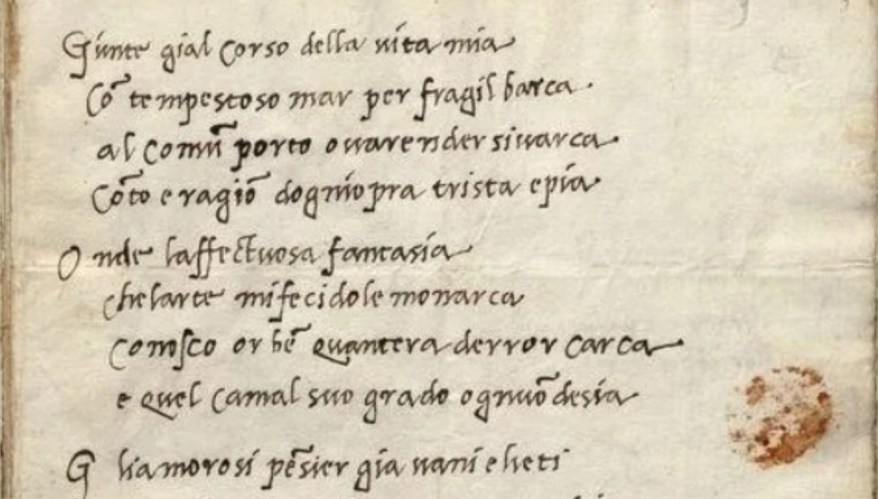 Giunto gial corso della vita mia
Cō tempestoso mar per fragil barca.
al Comū porto ovarender sivarca.
Cōto e ragiō dogniopra trista epia.
Onde laffectuosa fantasia
chelarte mifecidole monarca
Conosco or bē quantera derror carca
e quel camal suo grado ogniuō desia
Gliamorosi pēsier gia vani elieti